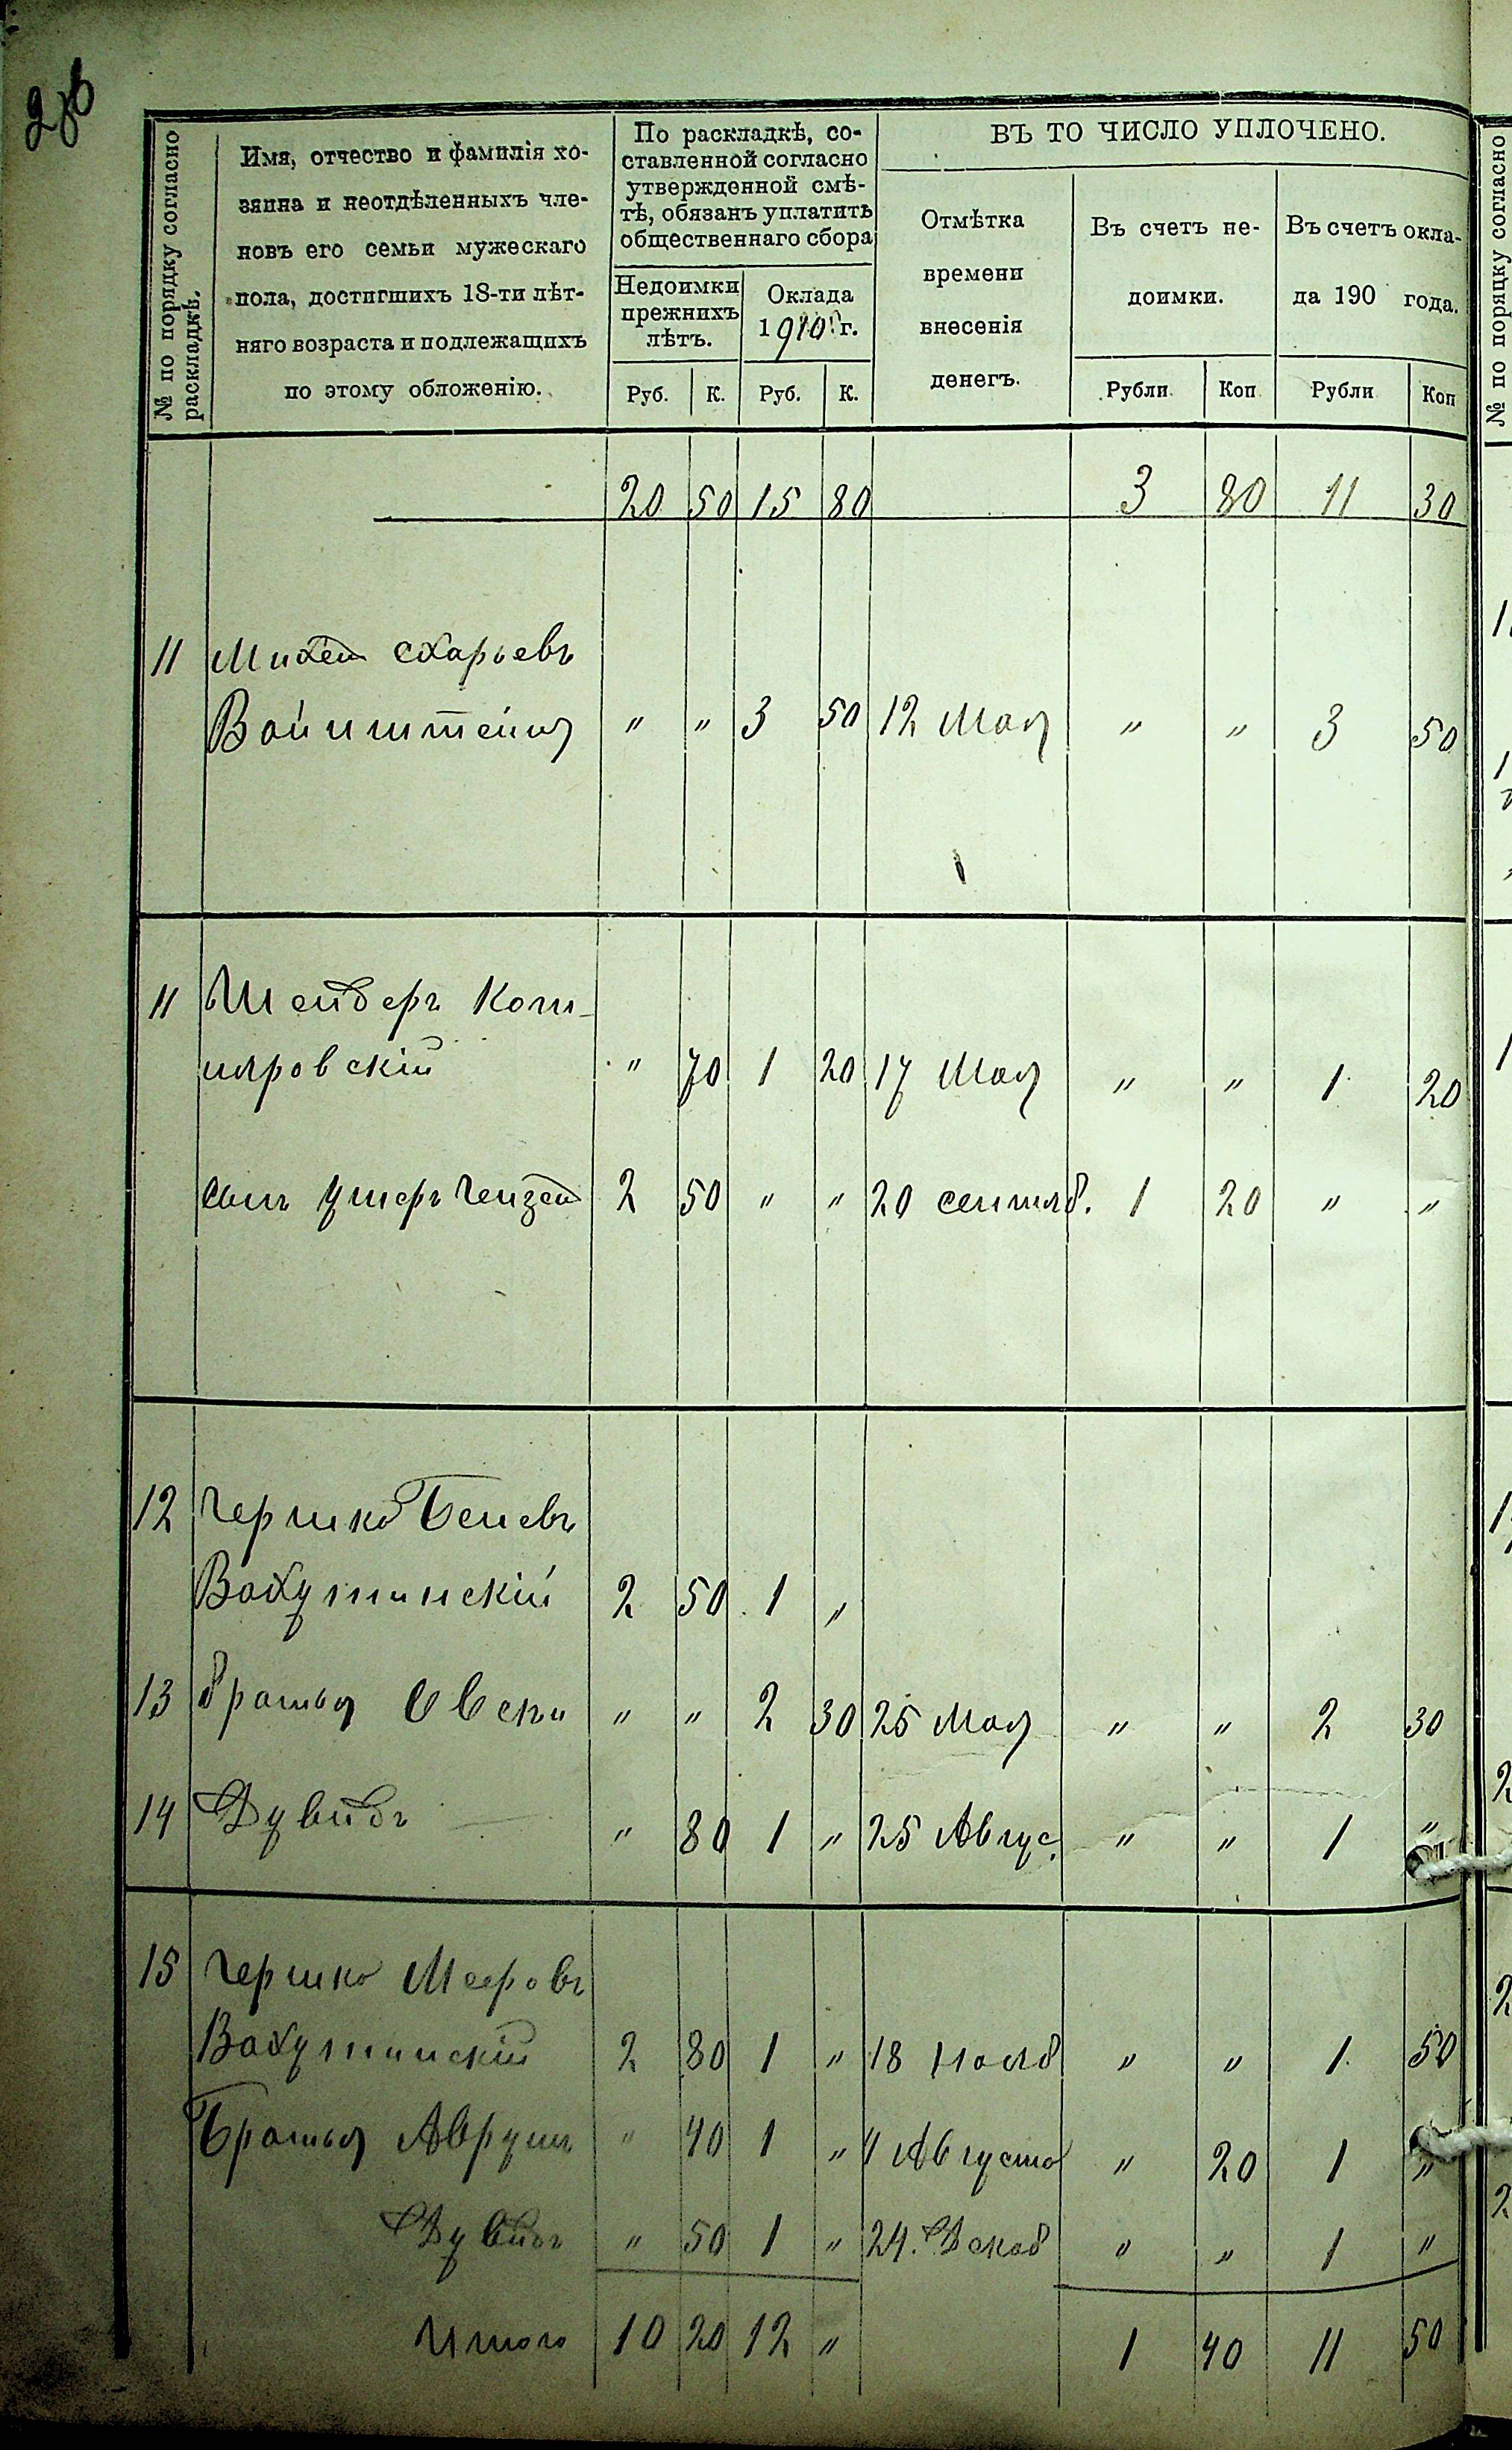 № по порядку согласно раскладкѣ.
Имя, отчество и фамилія хо-
зяина и неотдѣленныхъ чле-
новъ его семьи мужескаго
пола, достигшихъ 18-ти лѣт-
няго возраста и подлежащихъ
по этому обложенію.
По раскладкѣ, со-
ставленной согласно
утвержденной смѣ-
тѣ, обязанъ уплатить
общественнаго сбора
Недоимки прежнихъ лѣтъ.
Оклада 1910 г.
Руб. К. Руб. К.
ВЪ ТО ЧИСЛО УПЛОЧЕНО.
Отмѣтка
времени
внесенія
денегъ.
Въ счетъ не-
доимки.
Въ счетъ окла-
да 190 года.
Рубли Коп Рубли Коп
20 50 15 80 3 80 11 30
11
Войнштейнъ " " 3 50 12 Мая " " 3 50
11 Шендеръ Кош-
ировскій " 70 1 20 17 Мая " " 1 20
сынъ Ушеръ 2 50 " " 20 сентяб. 1 20 " "
12 Гершко Беневъ
Вахутинскій 2 50 1 "
13 братья Овсеи " " 2 30 25 Мая " " 2 30
14 Дувидъ " 80 1 " 25 Авгус. " " 1 "
15 Гершко Мееровъ
Вахутинскій 2 80 1 " 18 Нояб " " 1 50
Братья Аврумъ " 40 1 " 4 Августа " 20 1 "
Дувидъ " 50 1 " 24. Декаб " " 1 "
Итого 10 20 12 " 1 40 11 50
№ по порядку согласно